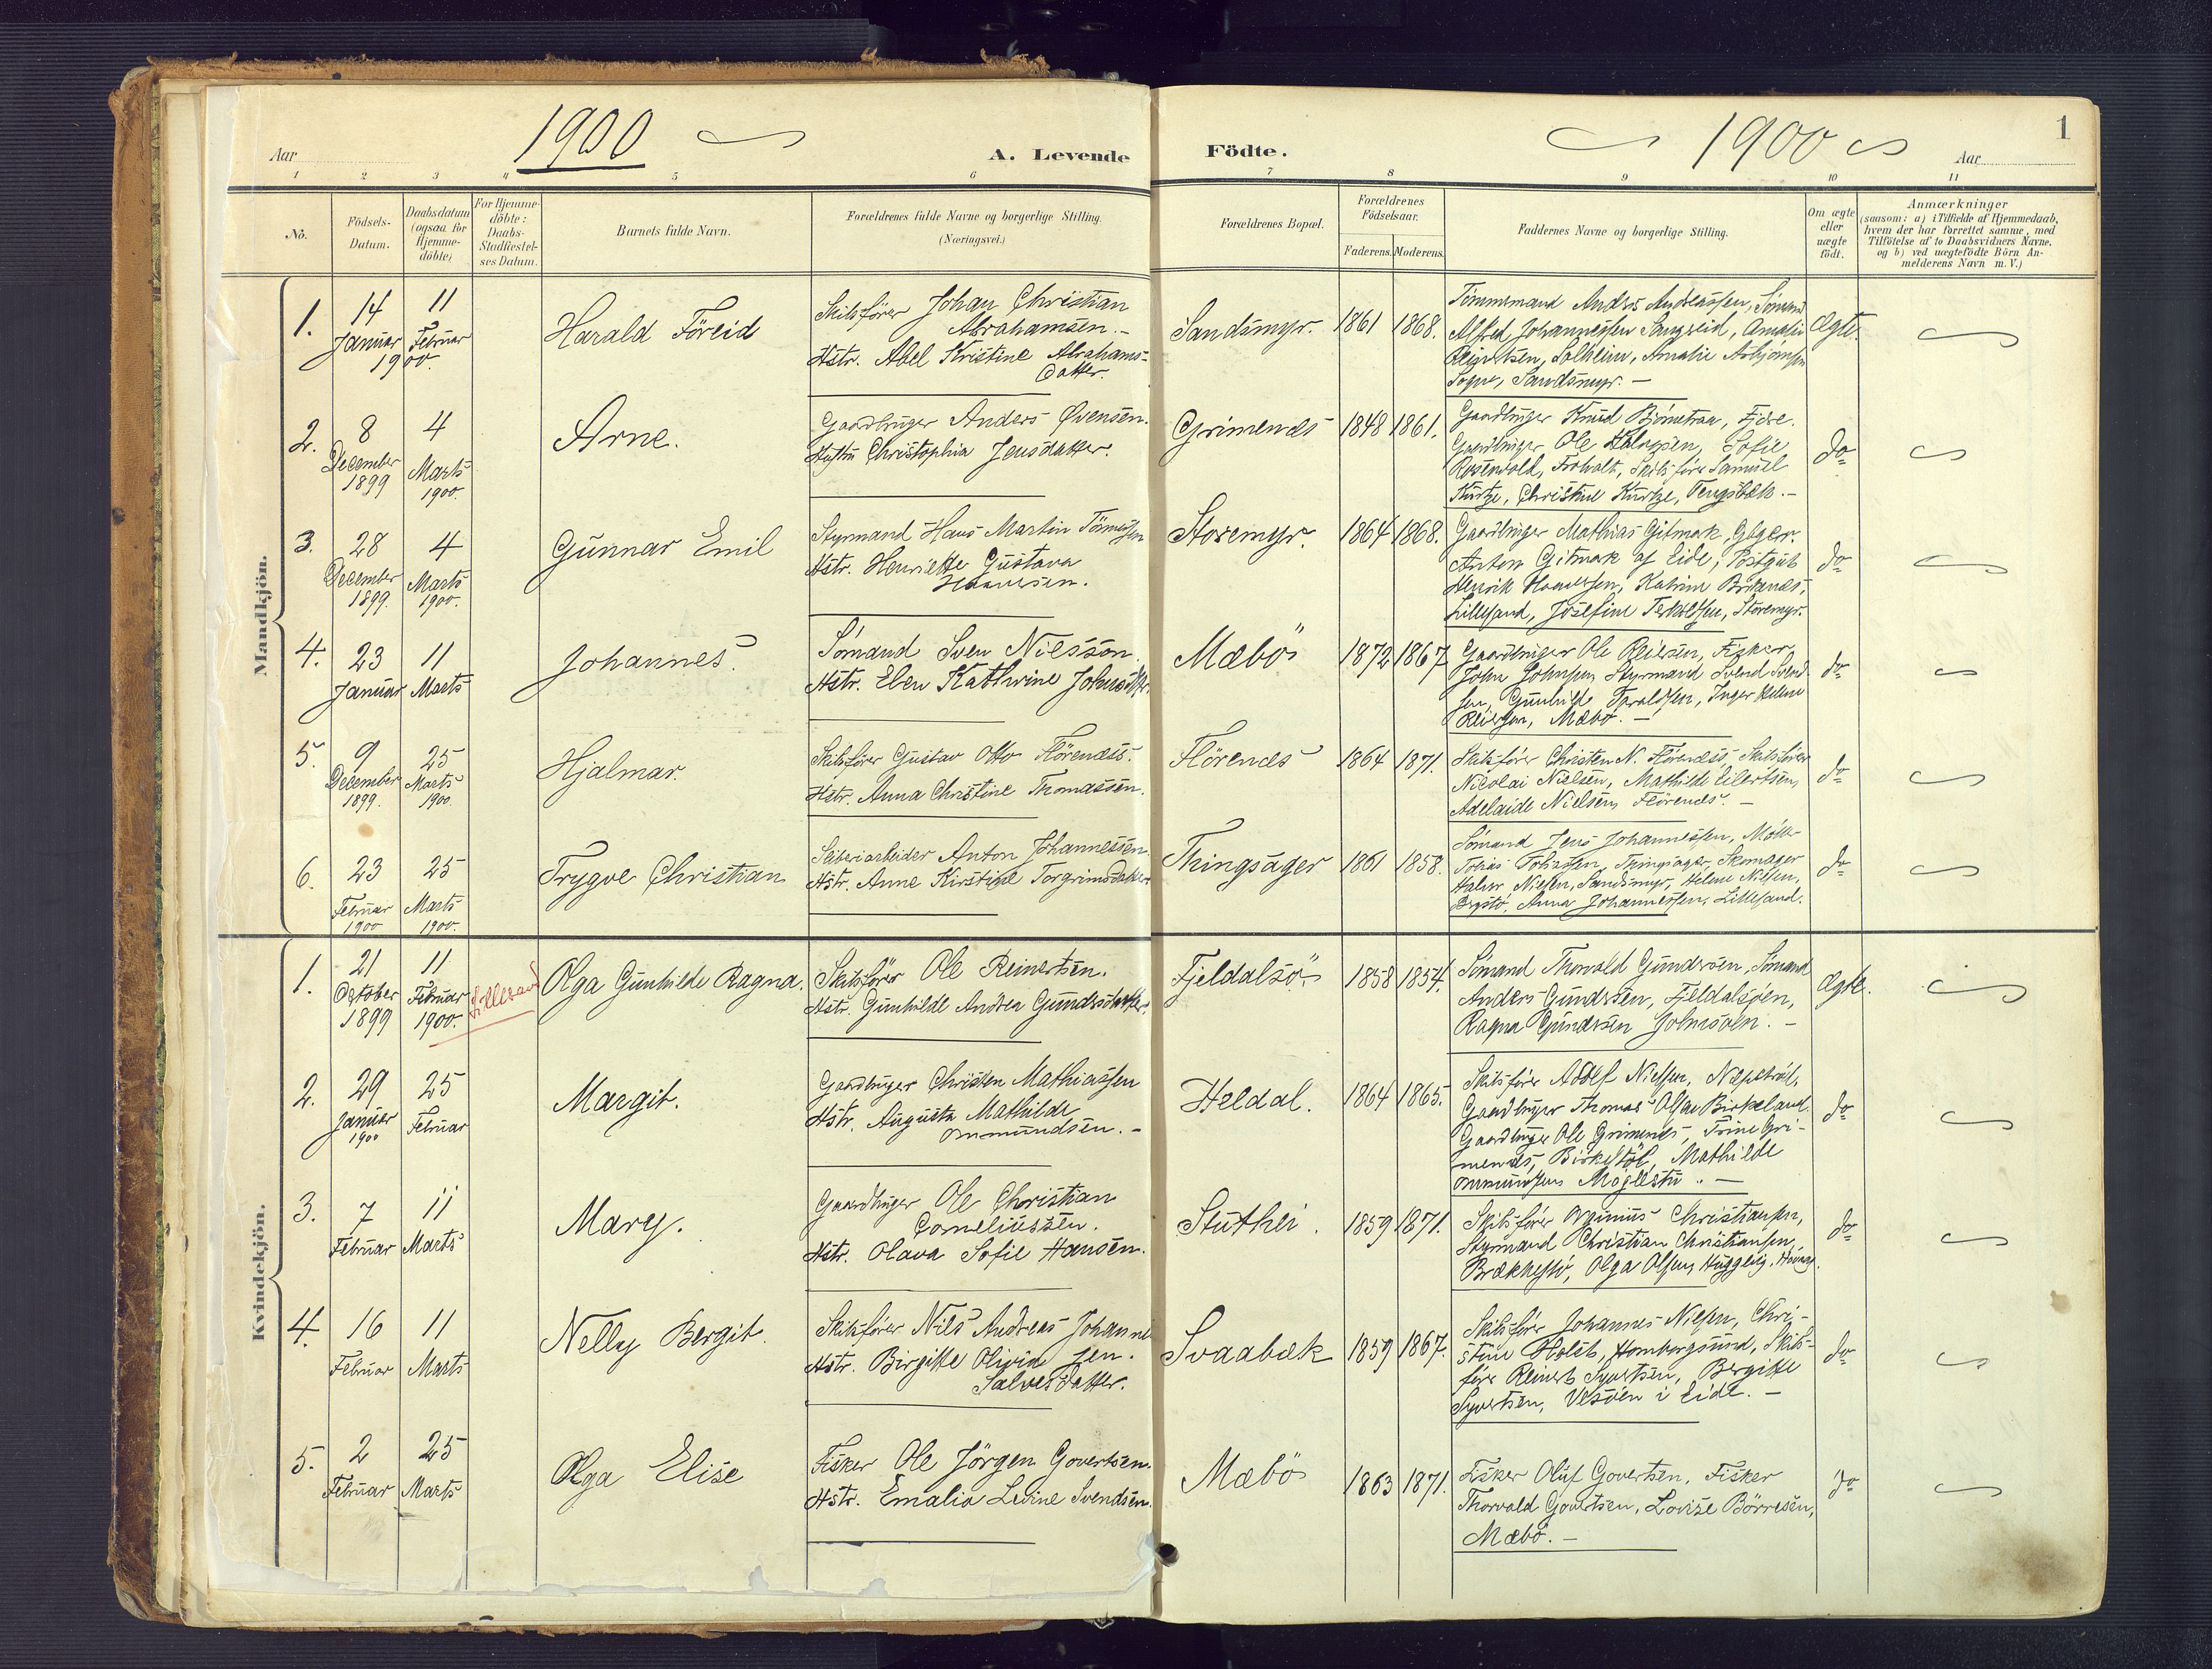 1900
Aar
A. Levende
Födte.
1900
Aar
1
1 2 3 4 5 6 7 8 9 10 11
No.
Födsels-
Datum.
Daabsdatum
(ogsaa for
Hjemme-
döbte)
For Hjemme-
döbte:
Daabs-
Stadfæstel-
ses Datum.
Barnets fulde Navn.
Forældrenes fulde Navne og borgerlige Stilling.
(Næringsvei.)
Forældrenes Bopæl.
Forældrenes
Födselsaar.
Faderens. Moderens.
Faddernes Navne og borgerlige Stilling.
Om ægte
eller
uægte
födt.
Anmærkninger
(saasom: a) i Tilfælde af Hjemmedaab,
hvem der har forrettet samme, med
Tilföielse af to Daabsvidners Navne.
og b) ved uægtefödte Börn An-
melderens Navn m. V.)
Mandkjön.
1.
14
Januar
11
Februar
1900.
Harald Föreid
Skibsfører Johan Christian
Abrahamsen.-
Hstr. Abel Kristine Abrahams-
datter.
Sandsmyr.
1861
1868.
Tømmermand Anders Andreassen, Sømand
Alfred Johannessen Sangreid, Amalie
Solheim, Amalie
Sandsmyr.-
Ægte.
2.
8
December
1899
4
Marts
1900.
Arne.
Gaardbruger Anders Øvensen.
Hustru Christophia Jensdatter.
Grimenes
1848
1861.
Gaardbruger Knud Bjönstraa, Fjære.
Gaardbruger Ole Halvorsen, Sofie
Rosenvold, Frövalt, Skibsfører Samuel
Kurtze, Christine Kurtze, Tengsbæk.-
do
3.
28
December
1899.
4
Marts
1900.
Gunnar Emil
Styrmand Hans Martin Tönnessen
Hstr. Henriette Gustava
Haavesen.
Storemyr.
1864
1868.
Gaardbruger Mathias Gitmark, Gbger.
Anton Gitmark af Eide, Postgut
Henrik Haavesen, Katrine
Lillesand, Josefine Terkelsen, Storemyr.
do
4.
23
Januar
11
Marts
Johannes.
Sømand Sven Nilsson
Hstr. Elen Kathrine Johnsdatter.
Mæbö
1872
1867
Gaardbruger Ole Reiersen, Fisker
John Johnsen, Styrmand Svend Svend-
sen, Gunhild Taraldsen, Inger Helene
Reiersen, Mæbö.-
do
5.
9
December
1899.
25
Marts
1900.
Hjalmar.
Skibsfører Gustav Otto Flörenæs.
Hstr. Anna Christine Thomassen.
Flörenæs
1864
1871.
Skibsfører Christen N. Flörenæs, Skibsfører
Nicolai Nielsen, Mathilde Eilertsen,
Adelaide Nielsen, Flörenæs.-
do
6.
23
Februar
1900
25
Marts
1900.
Trygve Christian
Sliberiarbeider Anton Johannessen
Hstr. Anne Kirstine Torgrimsdatter
Thingsager
1861
1858.
Sømand Jens Johannessen, Møller
Tobias Tobiassen, Thingsager, Skomager
Halvor Nielsen, Sandsmyr, Helene Nielsen,
Anna Johannessen, Lillesand.
do
Kvindekjön.
1.
21
October
1899
11
Februar
1900.
Lillesand
Olga Gunhilde Ragna.
Skibsfører Ole Reinertsen.
Hstr. Gunhilde Andrea Gundersdatter.
Fjeldalsö
1858
1854.
Sømand Thorvald Gundersen, Sømand
Anders Gundersen, Fjeldalsöen,
Ragna Gundersen Johnsöen.-
Ægte.
2.
29
Januar
1900
25
Februar
Margit.
Gaardbruger Christen Mathiassen
Hstr. Augusta Mathilde
Ommundsen.-
Heldal.
1864
1865.
Skibsfører Adolf Nielsen,
Gaardbruger Thomas Olsen Birkeland.
Gaardbruger Ole Grimenes, Trine Gri-
menes, Birkestöl, Mathilde
Ommundsen Möglestu.-
do
3.
7
Februar
11
Marts
Mary.
Gaardbruger Ole Christian
Corneliussen.
Hstr. Olava Sofie Hansen.
Stuthei.
1859
1871.
Skibsfører Christiansen,
Styrmand Christian Christiansen,
Brækkestö, Olga Olsen,
do
4.
16
Februar
11
Marts
Nelly Bergit.
Skibsfører Nils Andreas Johanne
sen.
Hstr. Birgitte Olivia
Salvesdatter.
Svaabæk
1859
1867.
Skibsfører Johannes Nielsen, Chri-
stine Holst, Homborgsund, Skibs-
fører Reinert Syvertsen, Bergitte
Syvertsen, Vesöen i Eide.-
do
5.
2
Februar
25
Marts
Olga Elise
Fisker Ole Jörgen Govertsen.
Hstr. Emalia Levine Svendsen.
Mæbö
1863
1871.
Fisker Oluf Govertsen, Fisker
Thorvald Govertsen, Lovise Börresen,
Mæbö.-
do